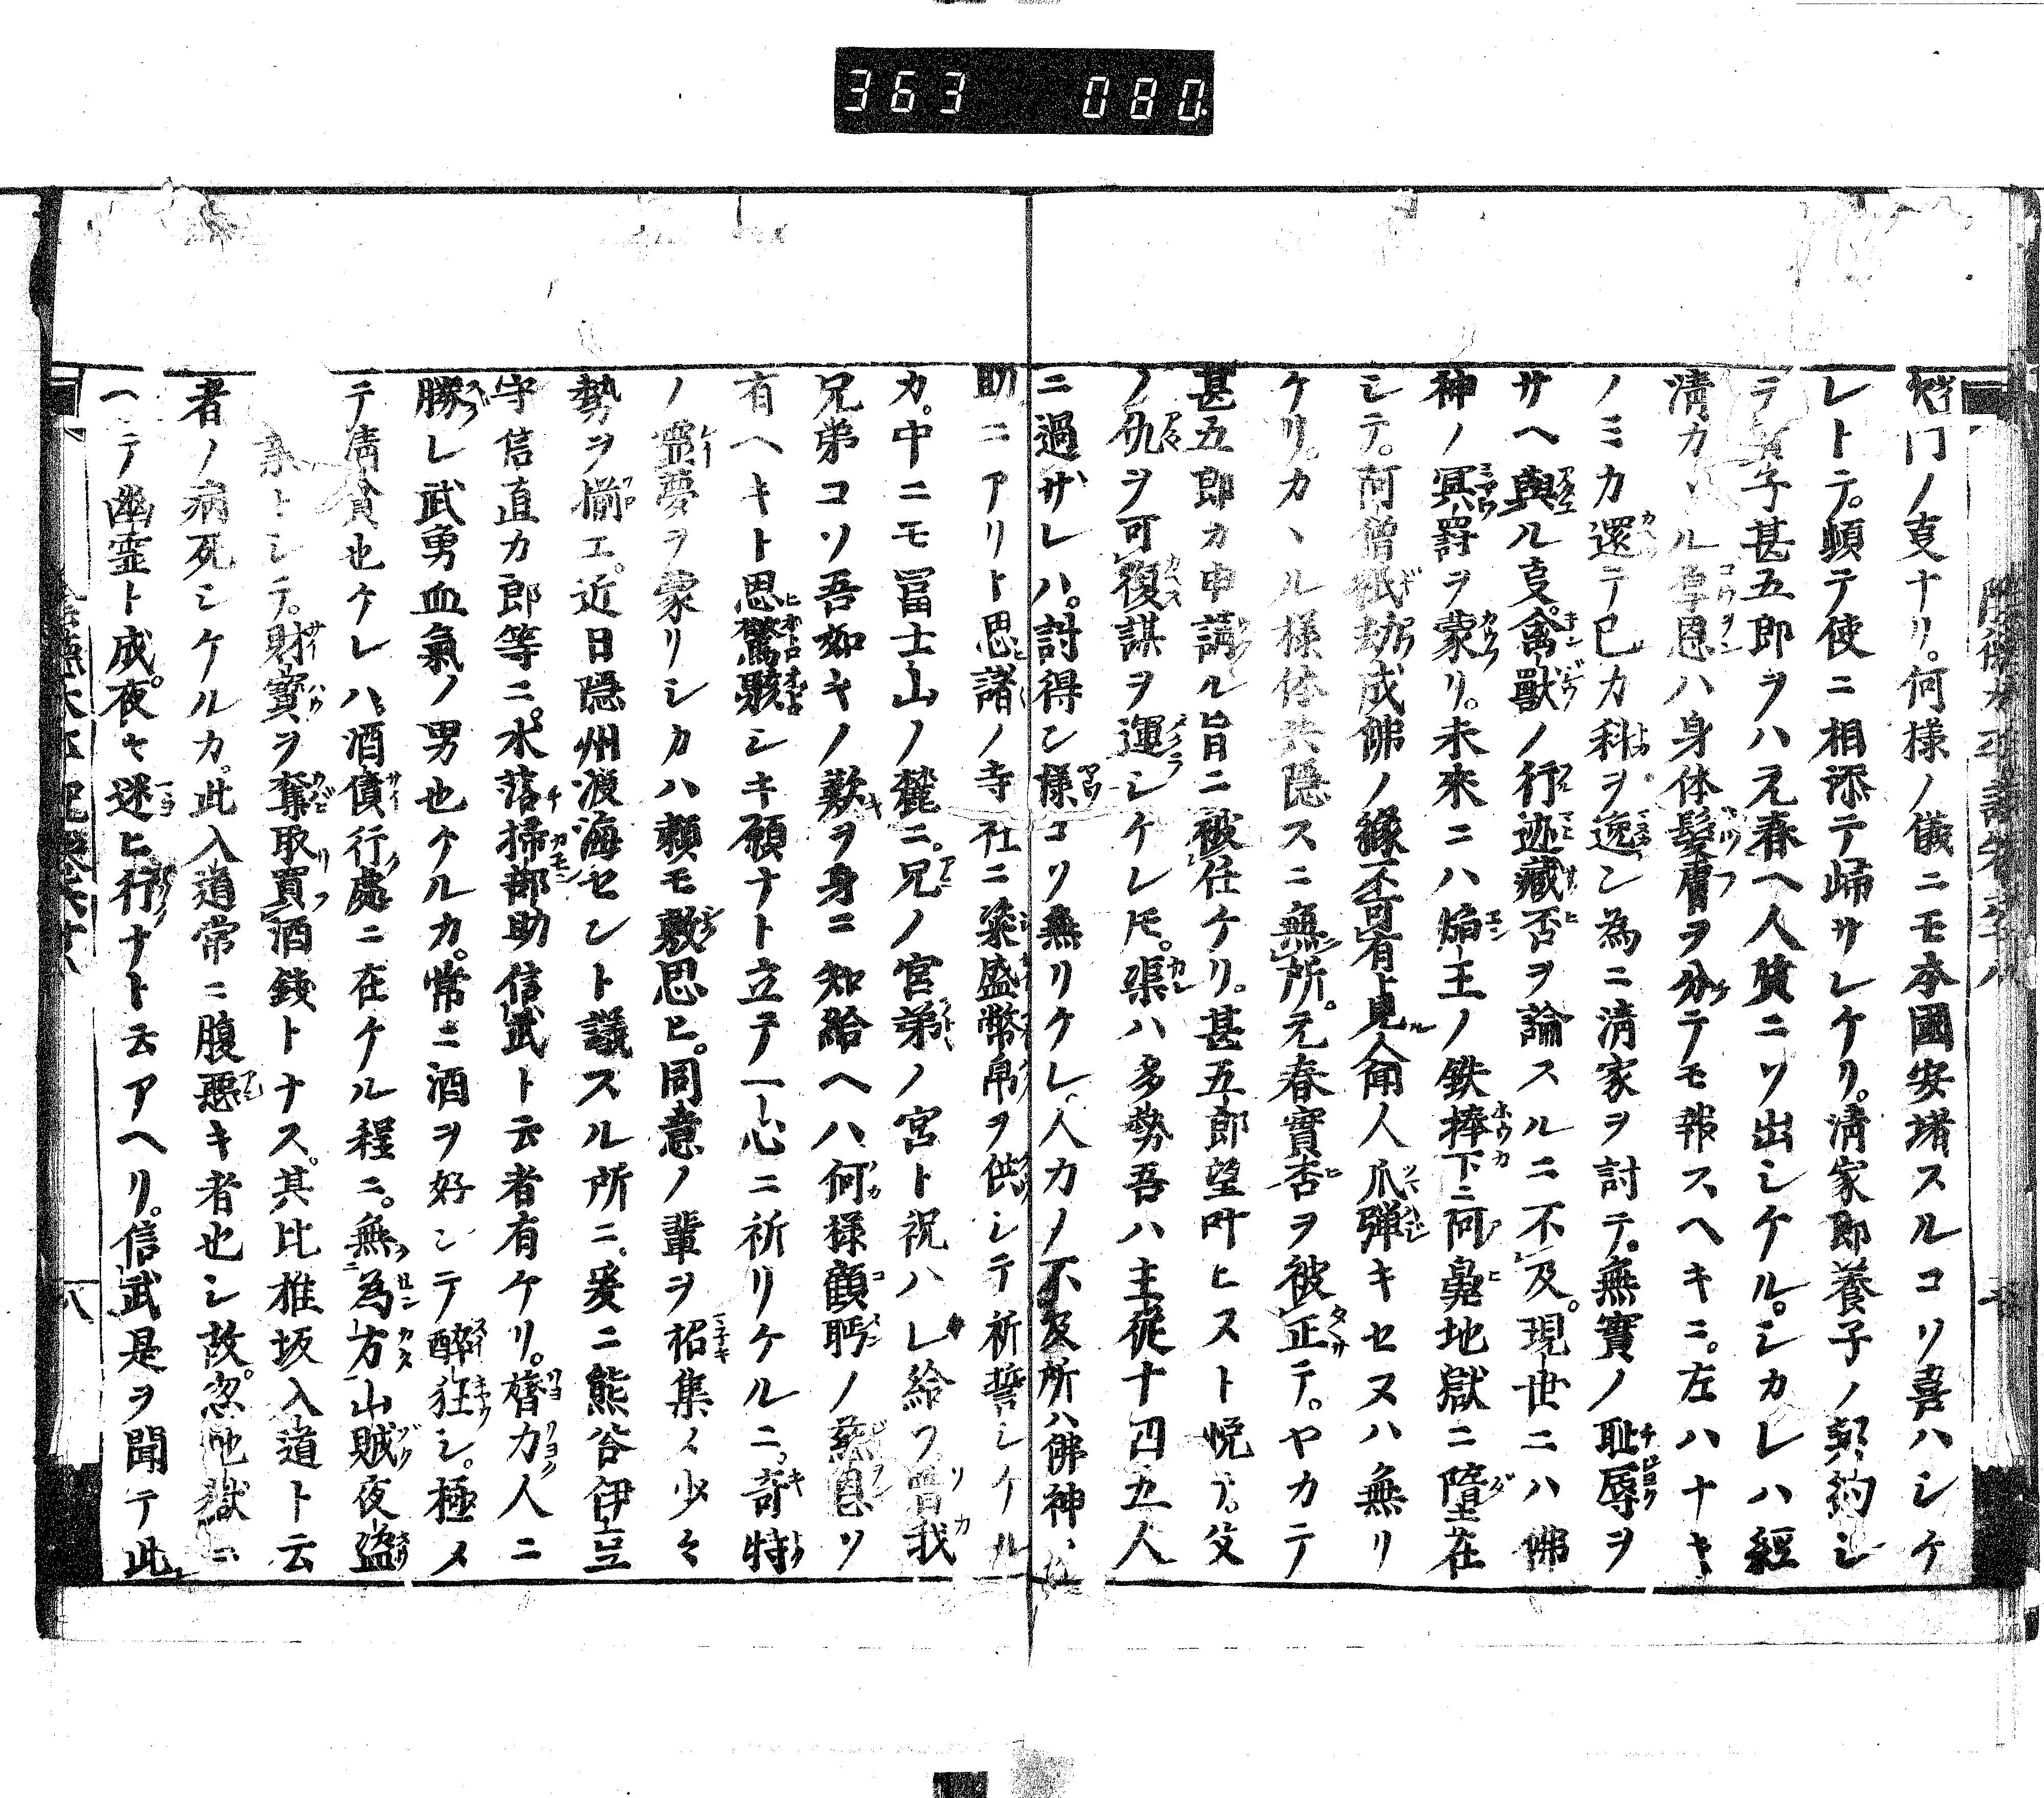 363 080
門ノ叓ナリ。何様ノ儀ニモ本國安堵スルコソ喜ハシケ
レトテ。頓テ使ニ相添テ歸サレケリ。淸家即養子ノ契約シ
テ 子甚五郎ヲハ元春ヘ人質ニソ出シケル。シカレハ經
淸カヽル厚恩ハ身体髪膚ヲ分テモ報スヘキニ。左ハナキ
ノミカ還テ己カ科ヲ逸レン為ニ淸家ヲ討テ。無實ノ耻辱ヲ
サヘ與ル叓。禽獸ノ行迹藏否ヲ論スルニ不及。現世ニハ佛
神ノ冥罸ヲ蒙リ。未來ニハ焔王ノ鉄捧下ニ阿鼻地獄ニ墮在
シテ。阿僧祇劫成佛ノ縁不可有ト見人聞人爪弾キセヌハ無リ
ケリ。カヽル様体共隠スニ無所。元春實否ヲ被正テ。ヤカテ
甚五郎カ申請ル旨ニ被任ケリ。甚五郎望叶ヒヌト悦テ。父
ノ仇ヲ可復謀ヲ運シケレ𪜈。渠ハ多勢吾ハ主從十四五人
ニ過サレハ。討得ン様コソ無リケレ。人カノ不及所ハ佛神ノ
助ニアリト思諸ノ寺社ニ粢盛幣帛ヲ供シテ祈誓シケル
カ。中ニモ冨士山ノ麓ニ。兄ノ宮弟ノ宮ト祝ハレ給フ曽我
兄弟コソ吾如キノ歎ヲ身ニ知給ヘハ。何様顧眄ノ慈恩ソ
有ヘキト思驚駭シキ願ナト立テ一心ニ祈リケルニ。奇特
ノ霊夢ヲ蒙リシカハ頼モ敷思ヒ。同意ノ輩ヲ招集メ少々
勢ヲ揃エ。近日隠州渡海セント議スル所ニ。爰ニ熊谷伊豆
守信直カ郎等ニ。水落掃部助信武ト云者有ケリ。膂力人ニ
勝レ武勇血氣ノ男也ケルカ。常ニ酒ヲ好ンテ醉狂シ。極メ
テ淸貧也ケレハ。酒債行處ニ在ケル程ニ。無為方山賊夜盗
トシテ。財寶ヲ奪取買酒錢トナス。其比椎坂入道ト云
者ノ病死シケルカ。此入道常ニ腹悪キ者也シ故。忽地獄ニ
ヘテ幽霊ト成。夜々迷ヒ行ナト云アヘリ。信武是ヲ聞テ此